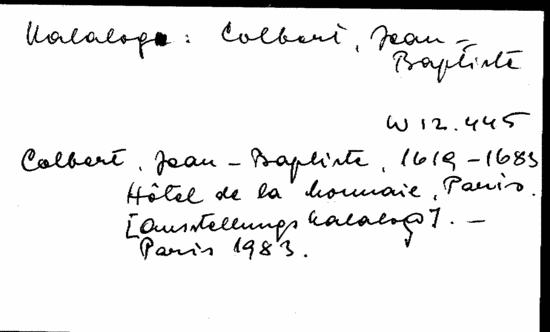 Kataloge: Colbert, Jean-
Baptiste
W 12.445
Colbert, Jean-Baptiste, 1619-1683
Hôtel de la monnaie, Paris.
[Ausstellungskatalog]. -
Paris 1983.